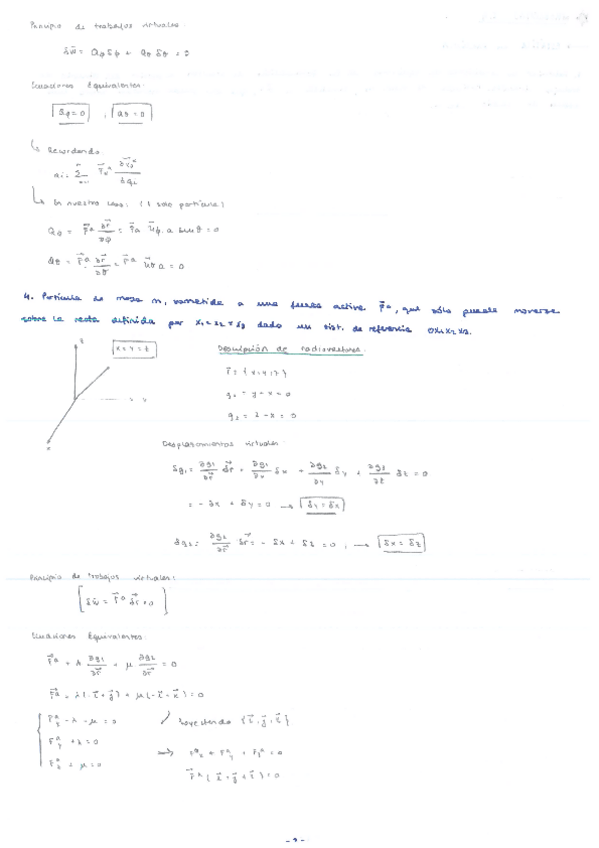 Principio de trabajos virtuales:
δW = Qφ δφ + Qθ δθ = 0
Ecuaciones Equivalentes:
Qφ = 0 , Qθ = 0
Recordando:
En nuestro caso: (1 sola partícula)
Qφ = F⃗ᵃ ∂r⃗/∂φ = F⃗ᵃ u⃗φ · a senθ = 0
Qθ = F⃗ᵃ ∂r⃗/∂θ = F⃗ᵃ u⃗θ a = 0
4. Partícula de masa m, sometida a una fuerza activa F⃗ᵃ, que sólo puede moverse
sobre la recta definida por x₁=x₂=x₃ dado un sist. de referencia OX₁X₂X₃.
x=y=z
Descripción de radiovectores:
g₁ = y-x=0
g₂ = z-x=0
Desplazamientos virtuales:
= -δx + δy = 0 → δy = δx
δg₂ = ∂g₂/∂r⃗ δr⃗ = -δx + δz = 0, → δx = δz
Principio de trabajos virtuales:
[δW = F⃗ᵃ δr⃗ = 0]
Ecuaciones Equivalentes:
F⃗ᵃ + λ ∂g₁/∂r⃗ + μ ∂g₂/∂r⃗ = 0
F⃗ᵃ + λ(-i⃗+j⃗) + μ(-i⃗+k⃗) = 0
Fᵃₓ - λ - μ = 0
Proyectando {i⃗, j⃗, k⃗}
Fᵃᵧ + λ = 0
⇒ Fᵃₓ + Fᵃᵧ + Fᵃz = 0
Fᵃz + μ = 0
F⃗ᵃ(i⃗+j⃗+k⃗) = 0